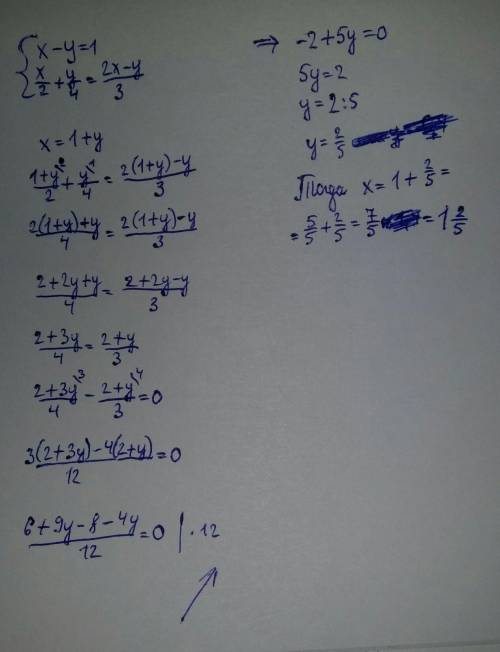 { x-y=1
x/2 + y/4 = (2x-y)/3
x = 1+y
(1+y)²/2 + y¹/4 = (2(1+y)-y)/3
(2(1+y)+y)/4 = (2(1+y)-y)/3
(2+2y+y)/4 = (2+2y-y)/3
(2+3y)/4 = (2+y)/3
(2+3y)³/4 - (2+y)⁴/3 = 0
(3(2+3y)-4(2+y))/12 = 0
(6+9y-8-4y)/12 = 0 | · 12
⇒ -2+5y=0
5y=2
y=2:5
y=2/5
Тогда x=1+2/5=
=5/5+2/5=7/5=1 2/5